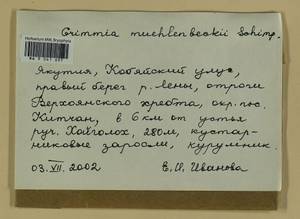 Grimmia muehlenbeckii Schimp.
Якутия, Кобяйский улус,
правый берег р. Лены, отроги
Верхоянского хребта, окр. пос.
Китчан, в 6 км от устья
руч. Хайголох, 280 м, кустар-
никовые заросли, курумник.
03.VII.2002 Е.И. Иванова